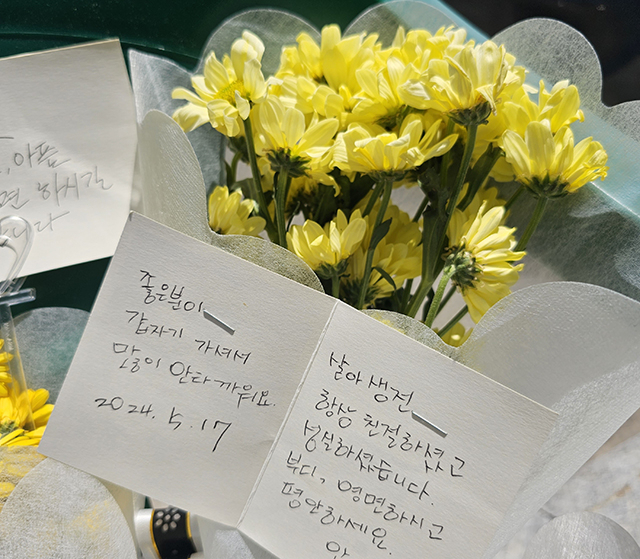 아픈
면 하시길
니다
좋은분이
갑자기 가셔서
많이 안타까워요.
2024. 5. 17
살아 생전
항상 친절하셨고
성실하셨습니다.
부디, 영면하시고
평안하세요.